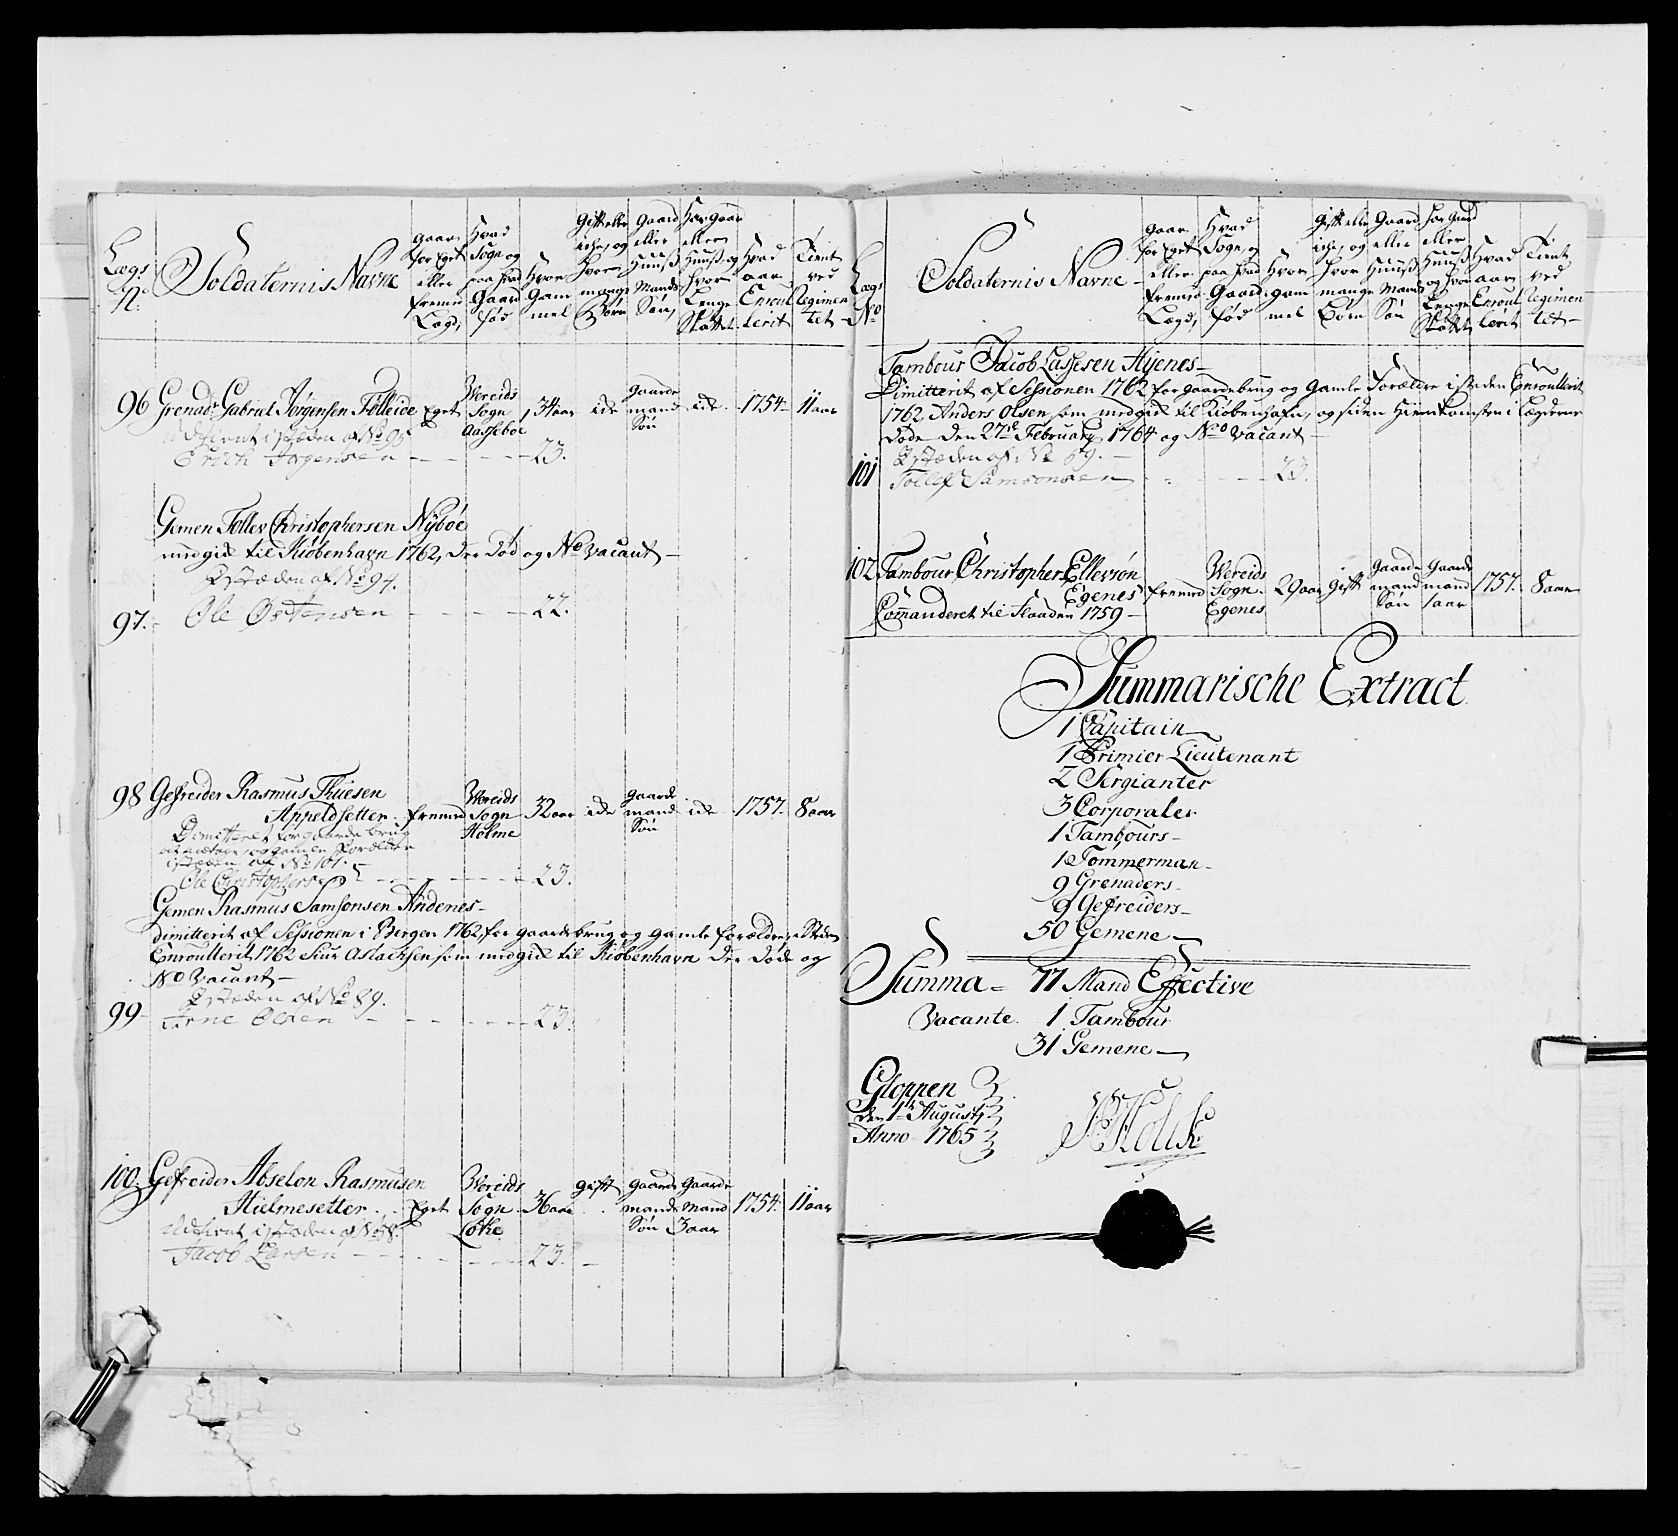 Lægs No
Soldaternis Navne
Gaar for Eget eller fremed Lægd,
Hvad Sogn og paa hvad Gaard född
Hvor Gam mel
Gift eller iche, og hvor mange Börn
Gaard eller Huuß Mands Sön,
Har gaard eller Huuß, og hvor Lenge Skattet
Hvad aar Enroul lerit
Tient ved Regimen tet
96 Grenadr Gabriel Jörgensen Følleide Eget Wereids Sogn Aaseboe 34 aar ide Gaarde mand Sön ide 1754 11 aar
Erich Jørgensen - - - 23.
Gemen Tollev Christophersen Nÿböe
medgik til Kiöbenhavn 1762, der död og No vacant -
I stæden af No 94.
97. Ole Østensen - - - 22.
98 Gefreider Rasmus Thuesen
Appeldsetter fremed Wereids Sogn Holme 32 aar ide Gaarde mand Sön ide 1757 8 aar
Dimitteret for gaarde brug
i stæden af No 101.
Ole Christophersen - - - 23.
Gemen Rasmus Samsonsen Andenes
dimitterit af Sessionen i Bergen 1762, for gaardebrug og gamle forældre i Steden
Enroullerit 1762 Siur Aslachsen, som medgik til Kiöbenhavn der döde og
No Vacant -
I stæden af No 89.
99 Arne Olsen - - - 23.
100. Gefreider Abselon Rasmusen
Hielmesetter Eget Wereids Sogn Löke 36 aar gift Gaarde mands Sön Gaarde mand 3 aar 1754 11 aar
Udtient, i stæden af No 98.
Jacob Larsen - - - 23. -
Lægs No
Soldaternis Navne
Gaar for Eget eller fremed Lægd,
Hvad Sogn, og paa hvad Gaard född
Hvor gam mel
Gift eller iche, og hvor mange Börn
Gaard eller Huuß Mands Sön
Har Gaard eller Huuß og hvor Lenge Skattet
Hvad aar Enroul lerit
Tient ved Regimen tet -
Tambour Jacob Lassesen Hÿenes -
Dimitterit af Sessionen 1762 for gaardebrug og Gamle Forældre i steden Enroullerit
1762 Anders Olsen, som medgik til Kiöbenhafn, og siden Hiemkomsten i Lægderne
Döde den 27de February 1764 og No vacant -
I stæden af No 59. -
101 Tollef Samsonsen - - - 23.
102 Tambour Christopher Ellevsön
Egenes fremed Wereids Sogn Egenes 29 aar gift Gaarde mand Sön Gaarde mand 1 aar 1757 8 aar
Commanderet til Flaaden 1759 -
Summarische Extract
1 Capitain -
1 Primier Lieutenant
2 Sergianter
3 Corporaler
1 Tambours -
1 Tömmerman -
9 Grenaders -
9 Gefreiders -
50 Gemene -
Summa = 77 Mand Effective
Vacante. 1 Tambour
31 Gemene -
Gloppen
den 1te Augusty
Anno 1765